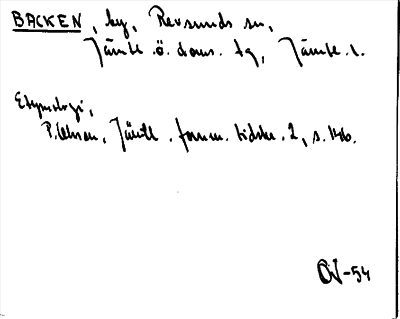 BACKEN, by, Revsunds sn,
Jämtl. ö. doms. tg, Jämtl. l.
Etymologi,
P. Olsson, Jämtl. fornm. tidskr. 2, s. 146.
ÖV-54